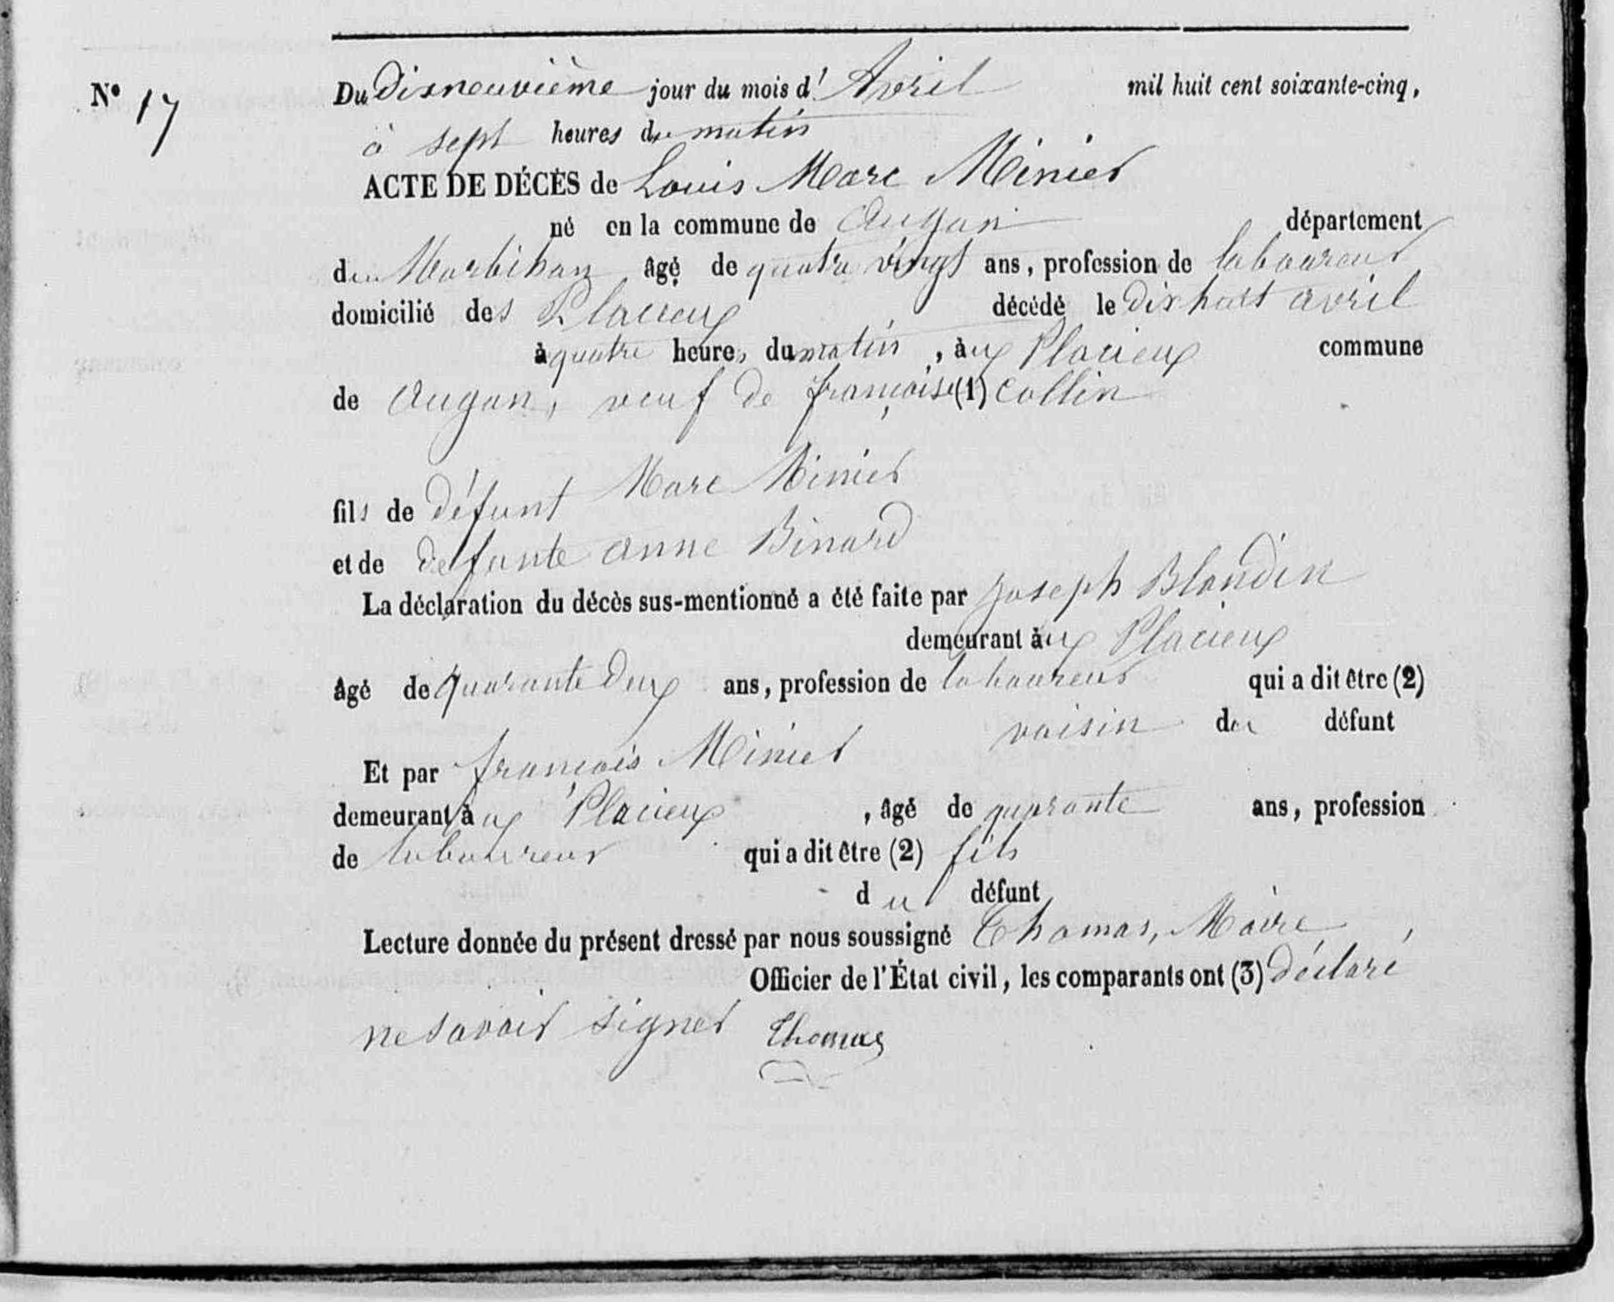 N° 17
Du disneuvième jour du mois d'Avril mil huit cent soixante-cinq,
à sept heures du matin
ACTE DE DÉCÈS de Louis Marc Minier
né en la commune de Augan département
du Morbihan âgé de quatre vingt ans, profession de laboureur
domicilié des Placieux décédé le dix huit avril
à quatre heures du matin, à ux Placieux commune
de Augan, veuf de françoise (1) Collin
fils de défunt Marc Minier
et de defunte anne Binard
La déclaration du décès sus-mentionné a été faite par Joseph Blondin
demeurant à ux Placieux
âgé de quarante deux ans, profession de laboureur qui a dit être (2)
voisin du défunt
Et par françois Minier
demeurant à ux Placieux, âgé de quarante ans, profession
de laboureur qui a dit être (2) fils
du défunt
Lecture donnée du présent dressé par nous soussigné Thomas, Maire
Officier de l'État civil, les comparants ont (3) déclaré
ne savoir signer Thomas